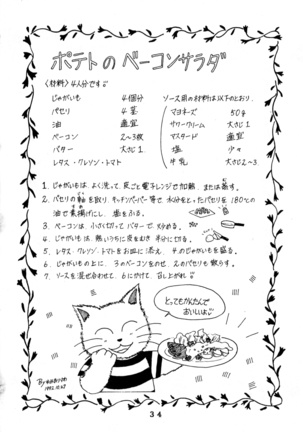 ポテトの ベーコンサラダ
〈材料〉4人分です
じゃがいも 4個分
パセリ 4茎
油 適宜
ベーコン 2〜3枚
バター 大さじ1
レタス・クレソン・トマト
ソース用の材料は以下のとおり。
マヨネーズ 50g
サワークリーム 大さじ1
マスタード 適宜
塩 少々
牛乳 大さじ2〜3
1. じゃがいもは、よく洗って、皮ごと電子レンジで加熱、または蒸す。
2. パセリの軸を取り、キッチンペーパー等で水分をとったパセリを180℃の
油で素揚げにし、塩をふる。
3. ベーコンは、小さく切ってバターで、炒める。
4. じゃがいもは、熱いうちに皮をむき 半分に切る。
5. レタス・クレソン・トマトをお皿に添え、4のじゃがいもを盛る。
6. じゃがいもの上に、3のベーコンをのせ、2のパセリも散らす。
7. ソースを混ぜ合わせて、6にかけて、召し上がれ
とってもかんたんで
おいしいよ
34